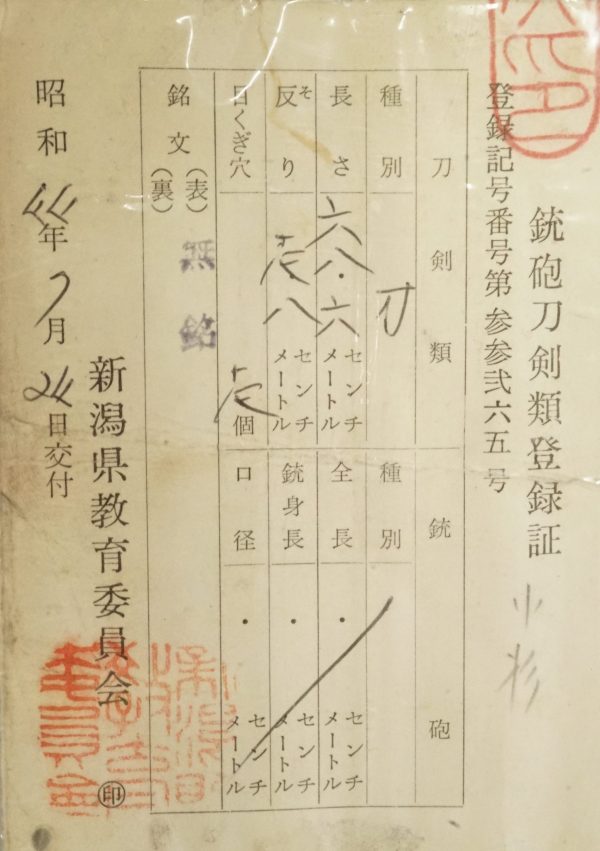 銃砲刀剣類登録証
小杉
登録記号番号第 参参弐六五 号
刀剣類
種別 刀
長さ 六八・六 センチメートル
反り そ 壱八 センチメートル
目くぎ穴 壱個
銘文(表)無銘
(裏)
銃砲
種別
全長 ・ センチメートル
銃身長 ・ センチメートル
口径 ・ センチメートル
昭和44年7月24日交付
新潟県教育委員会 印